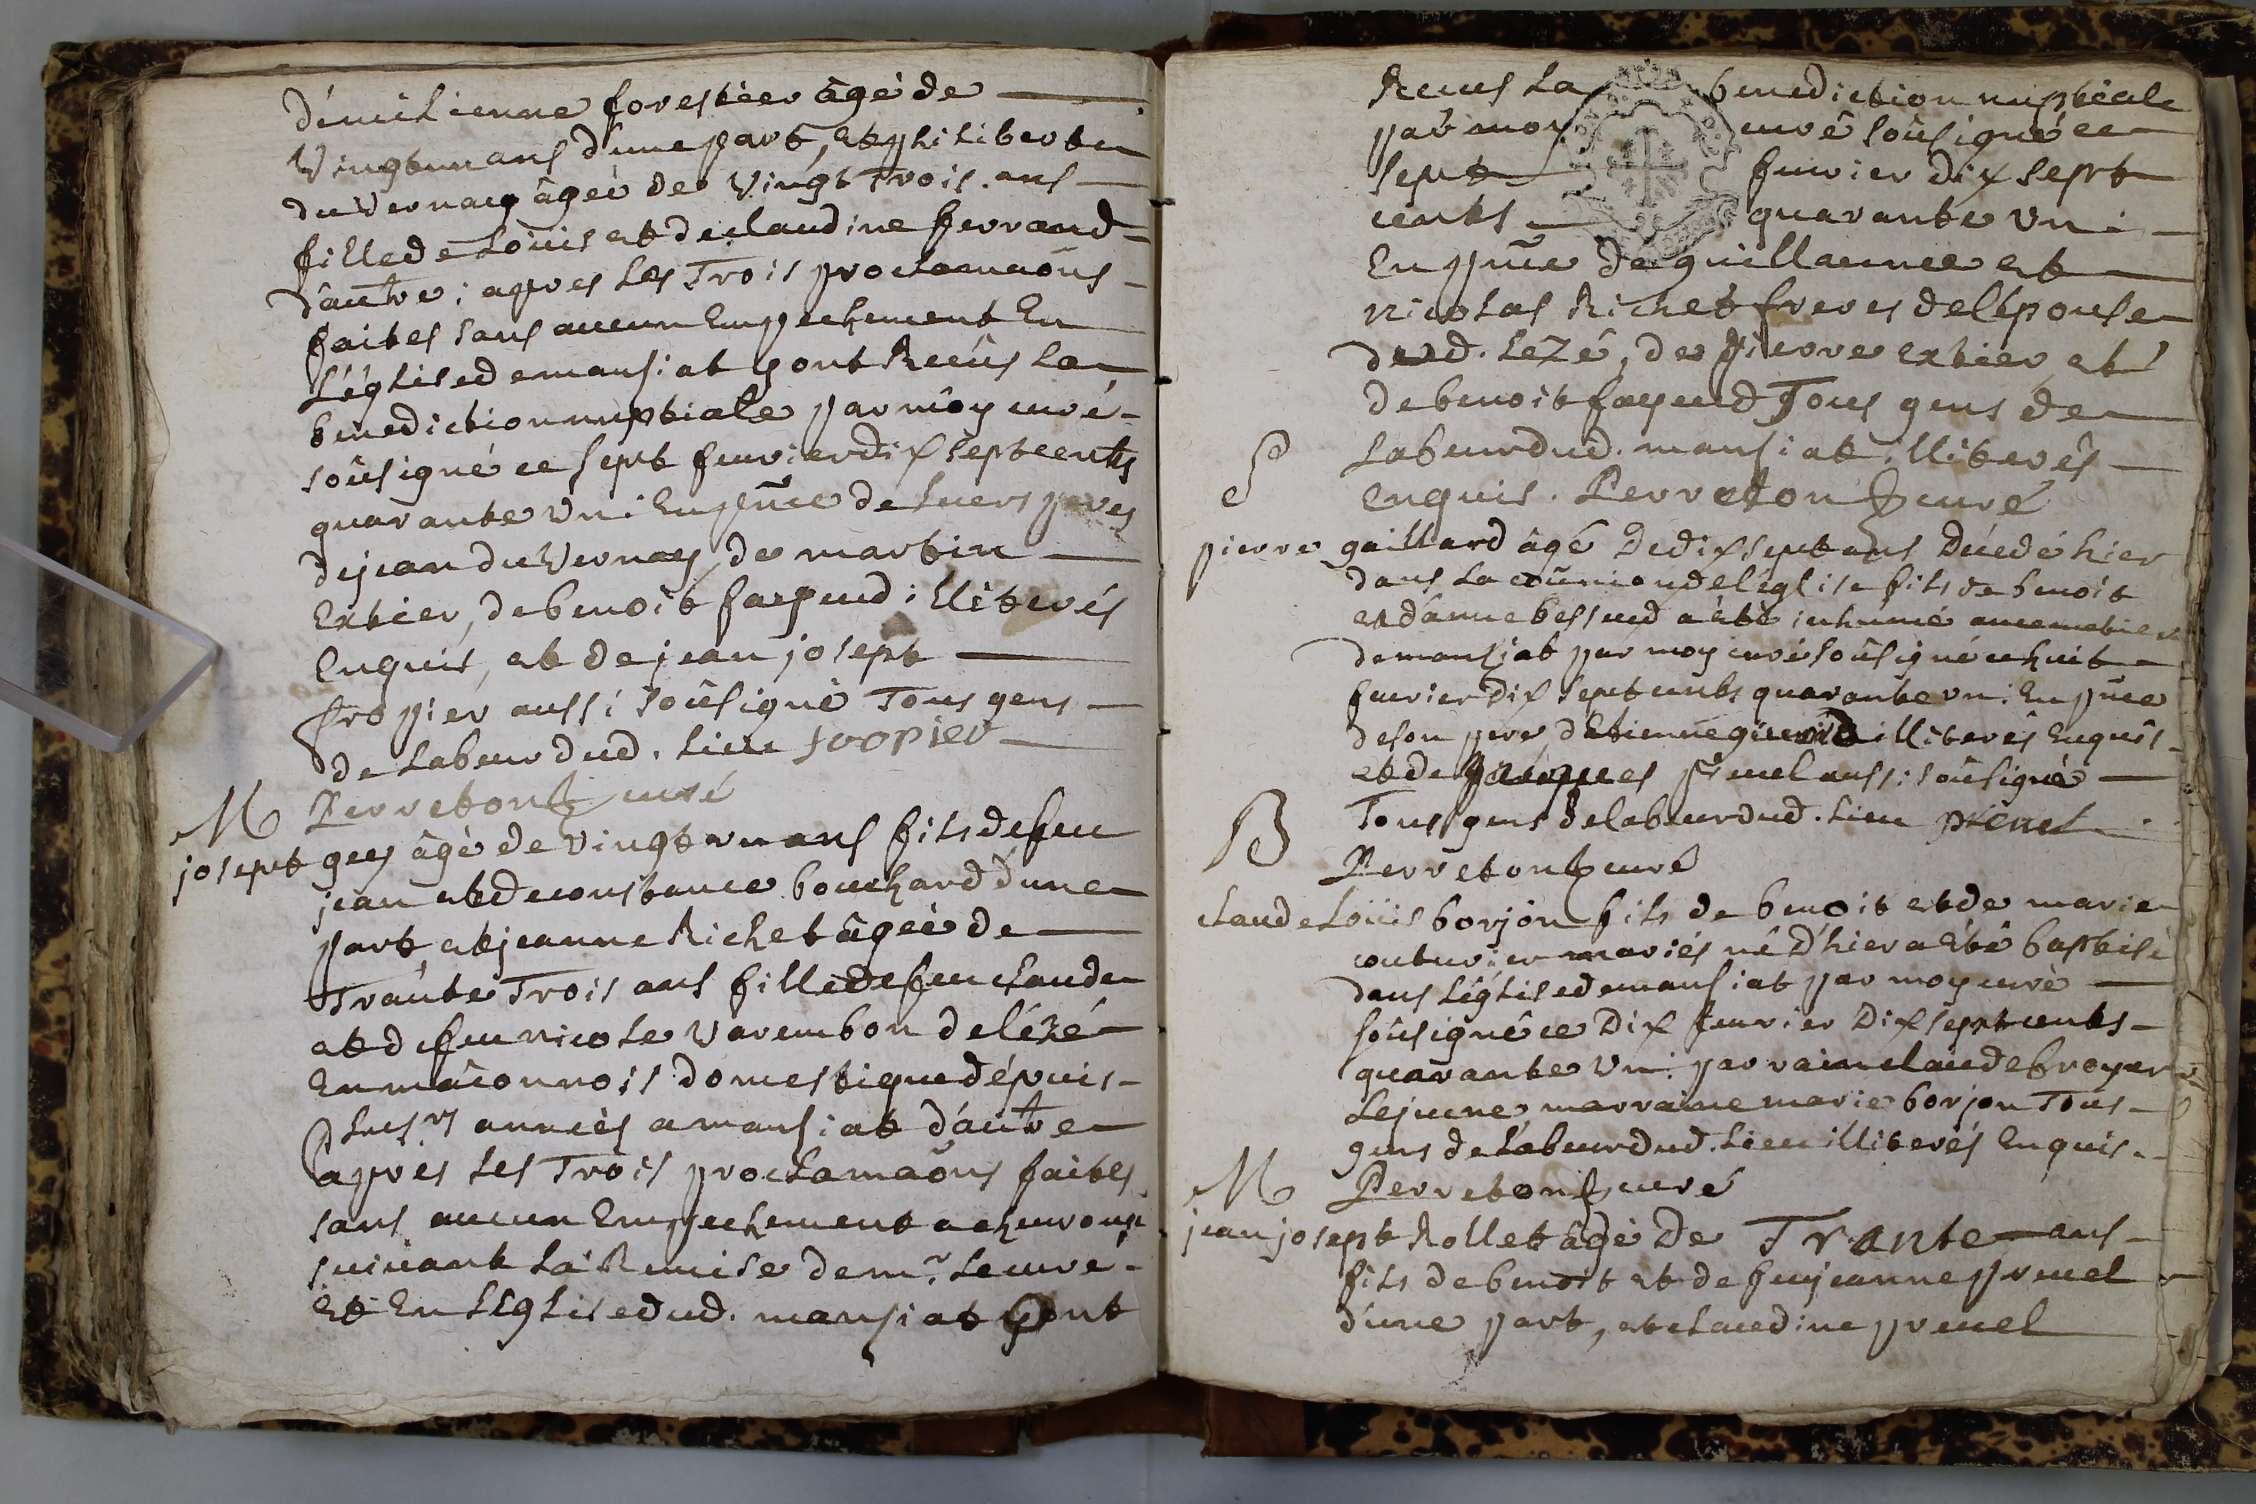 démilienne forestier âgé de
Vingtunans d'une part, et philiberte
du Vernay âgée de Vingt Trois ans
fille de Loüis et de claudine ferrand
d'autre ; apres Les Trois proclamaõns
faites sans aucun Empechement En
L'église de mansiat y ont Reçûs La
benediction nuptiale par môy curé
soûsigné ce sept fevrier dix sept cents
quarante Un ; En pñce de Leurs peres
de jean du Vernay, de martin
Extier, de benoit fayend illiterés
Enquis, et de jean josept
fropier aussi soûsigné Tous gens
de Labeur dud. Lieu fropier
M Perreton curé
josept gey âgé de Vingt un ans fils de feu
jean et de constance bouchard d'une
part, et jeanne Richet âgée de
Trante Trois ans fille de feu claude
et de feu nicole Varembon de lézé
En mâconnois domestique dépuis
plusrs années a mansiat d'autre
apres Les Trois proclamaõns faites
sans aucun Empechement a
suivant La Remise de mr. Le curé
Et En L'églis e dud. mansiat y ont
Recus La benediction nuptiale
par moy curé soûsigné ce
sept fevrier dix sept
cents quarante Un
En pñce de guillaume et
nicolas Richet freres de l'épouse
dud. Lezé, de pierre extier et
de benoit fayend Tous gens de
S Labeur dud. mansiat illiterés
enquis. Perreton curé
pierre gaillard âgé De dix sept ans Décedé hier
dans La coũnion de l'église fils de benoit
et d'anne bessend a été inhumé au cemetiere
de mansiat par moy curé soûsigné ce huit
fevrier Dix sept cents quarante un En pñce
de son pere, d'Etienne illiterés Enquis
et de jacques pruel aussi soûsigné
B Tous gens de labeur dud. Lieu pruel
Perreton curé
claude Loüis borjon fils de benoit et de marie
couturier mariés né D'hier a été baptisé
dans L'église de mansiat par moy curé
soûsigné ce Dix fevrier Dix sept cents
quarante Un. parrain claude broyer
Lejeune, marraine marie borjon Tous
gens de Labeur dud. Lieu illiterés Enquis
M Perreton curé
jean josept Rollet âgé De Trante ans
fils de benoit et de feu jeanne pruel
d'une part, et claudine pruel